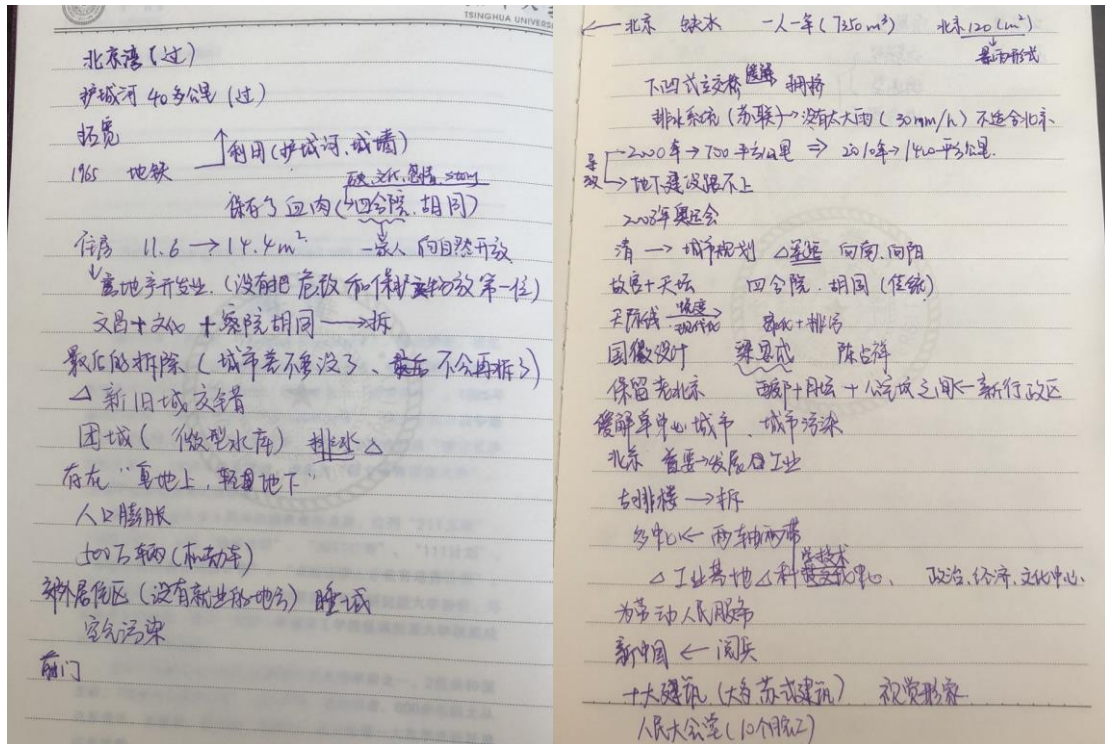 TSINGHUA UNIVERS
北京湾(过)
护城河 40多公里 (过)
拓宽
利用(护城河、城墙)
1965 地铁
历史、文化、感情、story
保存了血肉(四合院、胡同)
住房 11.6 → 14.4m² 一家人 向自然开放
房地产开发业.(没有把危改和保护文物放第一位)
文昌+文化+察院胡同 → 拆
最后的拆除(城市差不多没了、不会再拆了)
△ 新旧城交错
团城( 微型水库) 排水 △
存在 "重地上,轻地下"
人口膨胀
500万辆(机动车)
郊外居住区(没有就业的地方) 睡城
空气污染
前门
← 北京 缺水 一人一年(7350m³) 北京120(m³)
暴雨形式
下凹式立交桥 拥挤
排水系统(苏联)→没有太大雨(30mm/h) 不适合北京
导致
2000年→700平方公里 ⇒ 2010年→1400平方公里.
→地下建设跟不上
2008年奥运会
清 → 城市规划 △ 向南、向阳
故宫+天坛 四合院、胡同(传统)
天际线 现代化 绿化+排污
国徽设计 梁思成 陈占祥
保留老北京 西郊+月坛+公主坟之间←新行政区
缓解单中心城市、城市污染
北京 首要→发展 工业
古牌楼 → 拆
多中心← 两轴两带
学技术
△ 工业基地 △科 中心、 政治、经济、文化中心.
为劳动人民服务
新中国 ← 阅兵
十大建筑(大多苏式建筑) 视觉形象
人民大会堂(10个月完工)